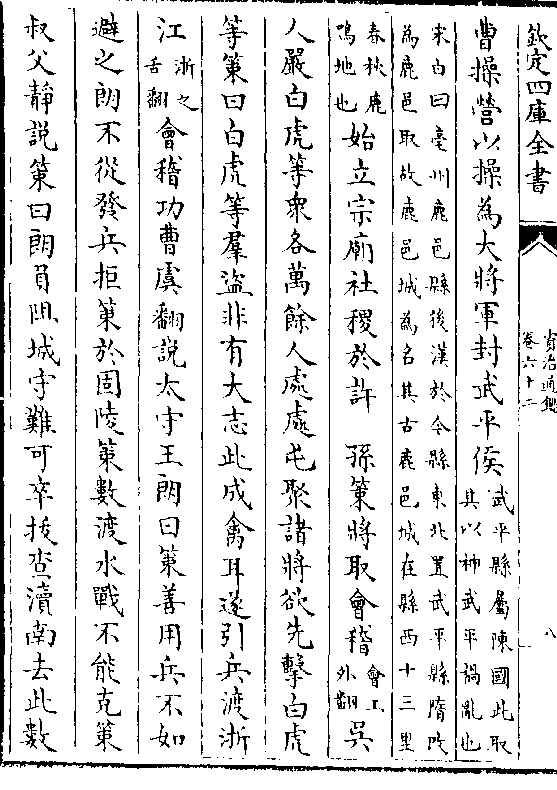 欽定四庫全書
資治通鑑
卷六十二
八
曹操營以操為大將軍封武平侯武平縣屬陳國此取其以神武平禍亂也
宋白曰亳州鹿邑縣後漢於今縣東北置武平縣隋改為鹿邑取故鹿邑城為名其古鹿邑城在縣西十三里
春秋鹿鳴地也始立宗廟社稷於許 孫策將取會稽會工外翻吳
人嚴白虎等衆各萬餘人處處屯聚諸將欲先擊白虎
等策曰白虎等羣盜非有大志此成禽耳遂引兵渡浙
江浙之舌翻會稽功曹虞翻說太守王朗曰策善用兵不如
避之朗不從發兵拒策於固陵策數渡水戰不能克策
叔父靜説策曰朗負阻城守難可卒拔查瀆南去此數